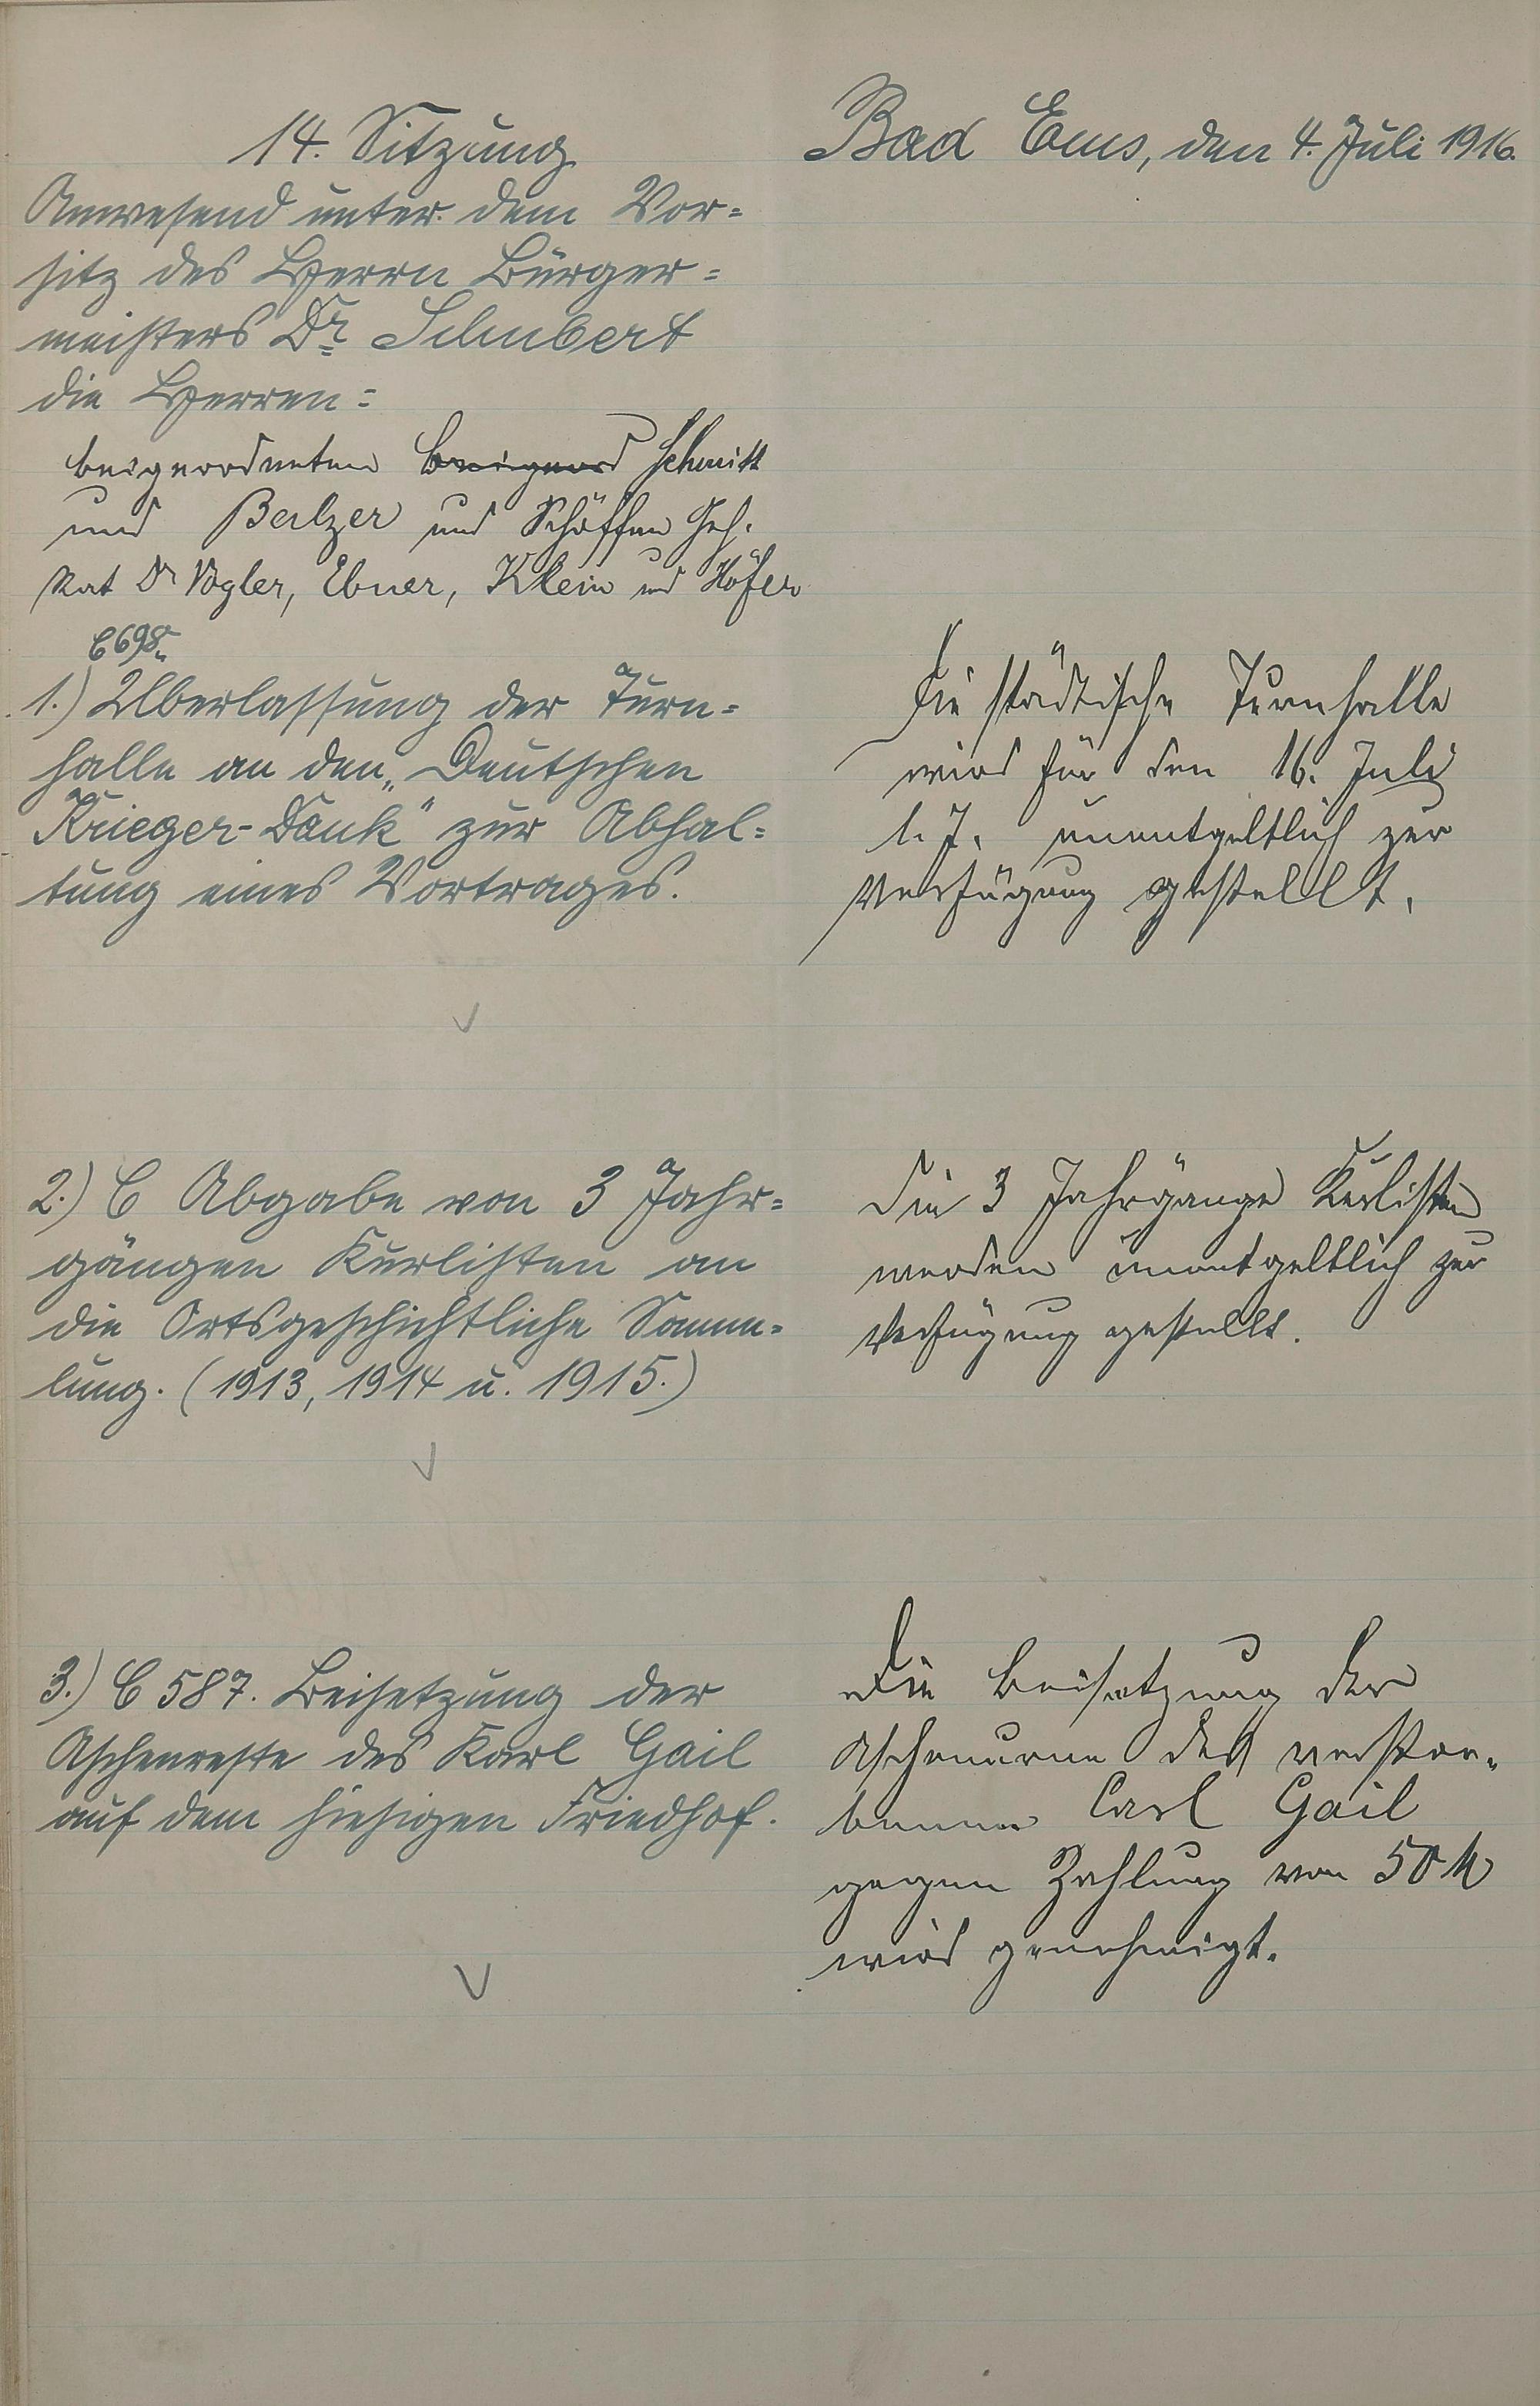 14. Sitzung
Anwesend unter dem Vor=
sitz des Herrn Bürger=
meisters Dr. Schubert
die Herren:
beigeordneten beigeord Schmitt
und Balzer und Schöffen Geh.
Rat Dr Vogler, Ebner, Klein und Höfer
C 698.
1.) Überlassung der Turn=
halle an den „Deutschen
Krieger-Dank" zur Abhal=
tung eines Vortrages.
2.) C Abgabe von 3 Jahr=
gängen Kurlisten an
die Ortsgeschichtliche Samm=
lung. (1913, 1914 u. 1915.)
3.) C 587. Beisetzung der
Aschenreste des Karl Gail
auf dem hiesigen Friedhof.
Bad Ems, den 4. Juli 1916.
Die städtische Turnhalle
wird für den 16. Juli
l. J. unentgeltlich zur
Verfügung gestellt.
Die 3 Jahrgänge Kurlisten
werden unentgeltlich zur
Verfügung gestellt.
Die Beisetzung der
Aschenurne des verstor=
benen Carl Gail
gegen Zahlung von 50 M
wird genehmigt.